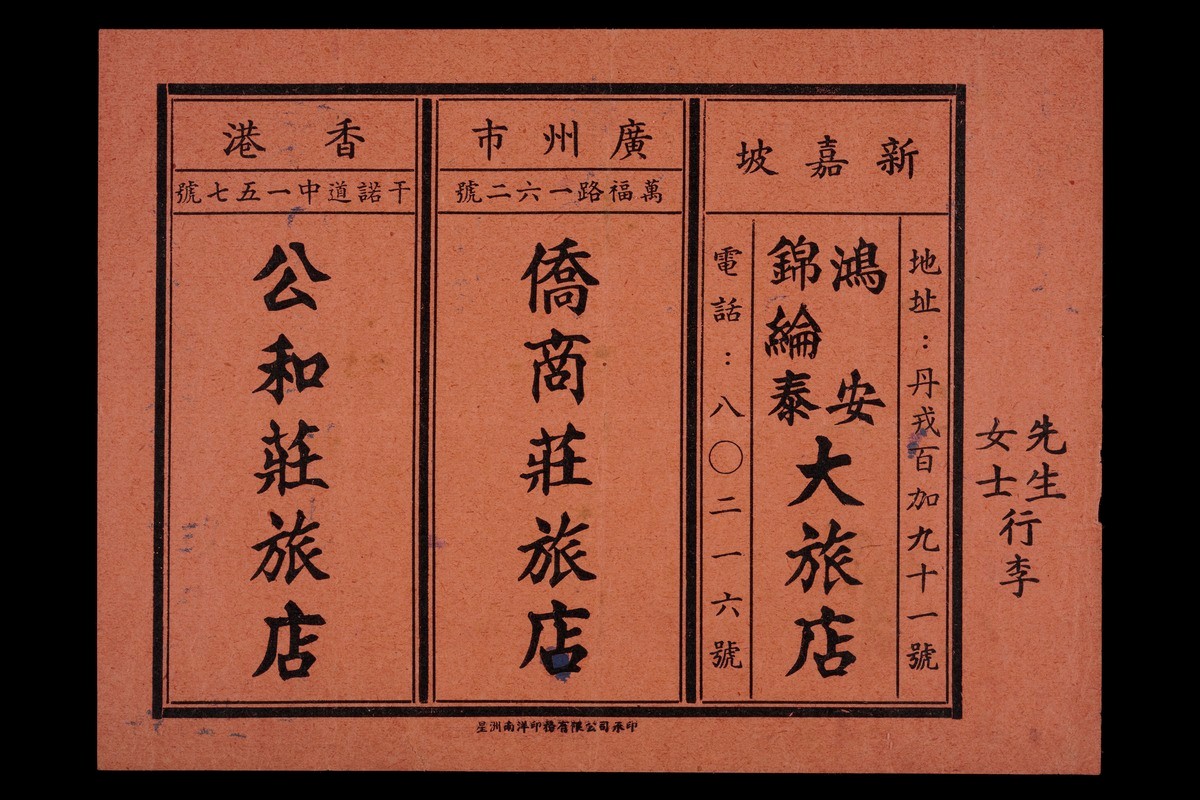 先生
女士
行李
新嘉坡
地址：丹戎百加九十一號
鴻安
錦綸泰
大旅店
電話：八〇二一六號
廣州市
萬福路一六二號
僑商莊旅店
香港
干諾道中一五七號
公和莊旅店
星洲南洋印務有限公司承印